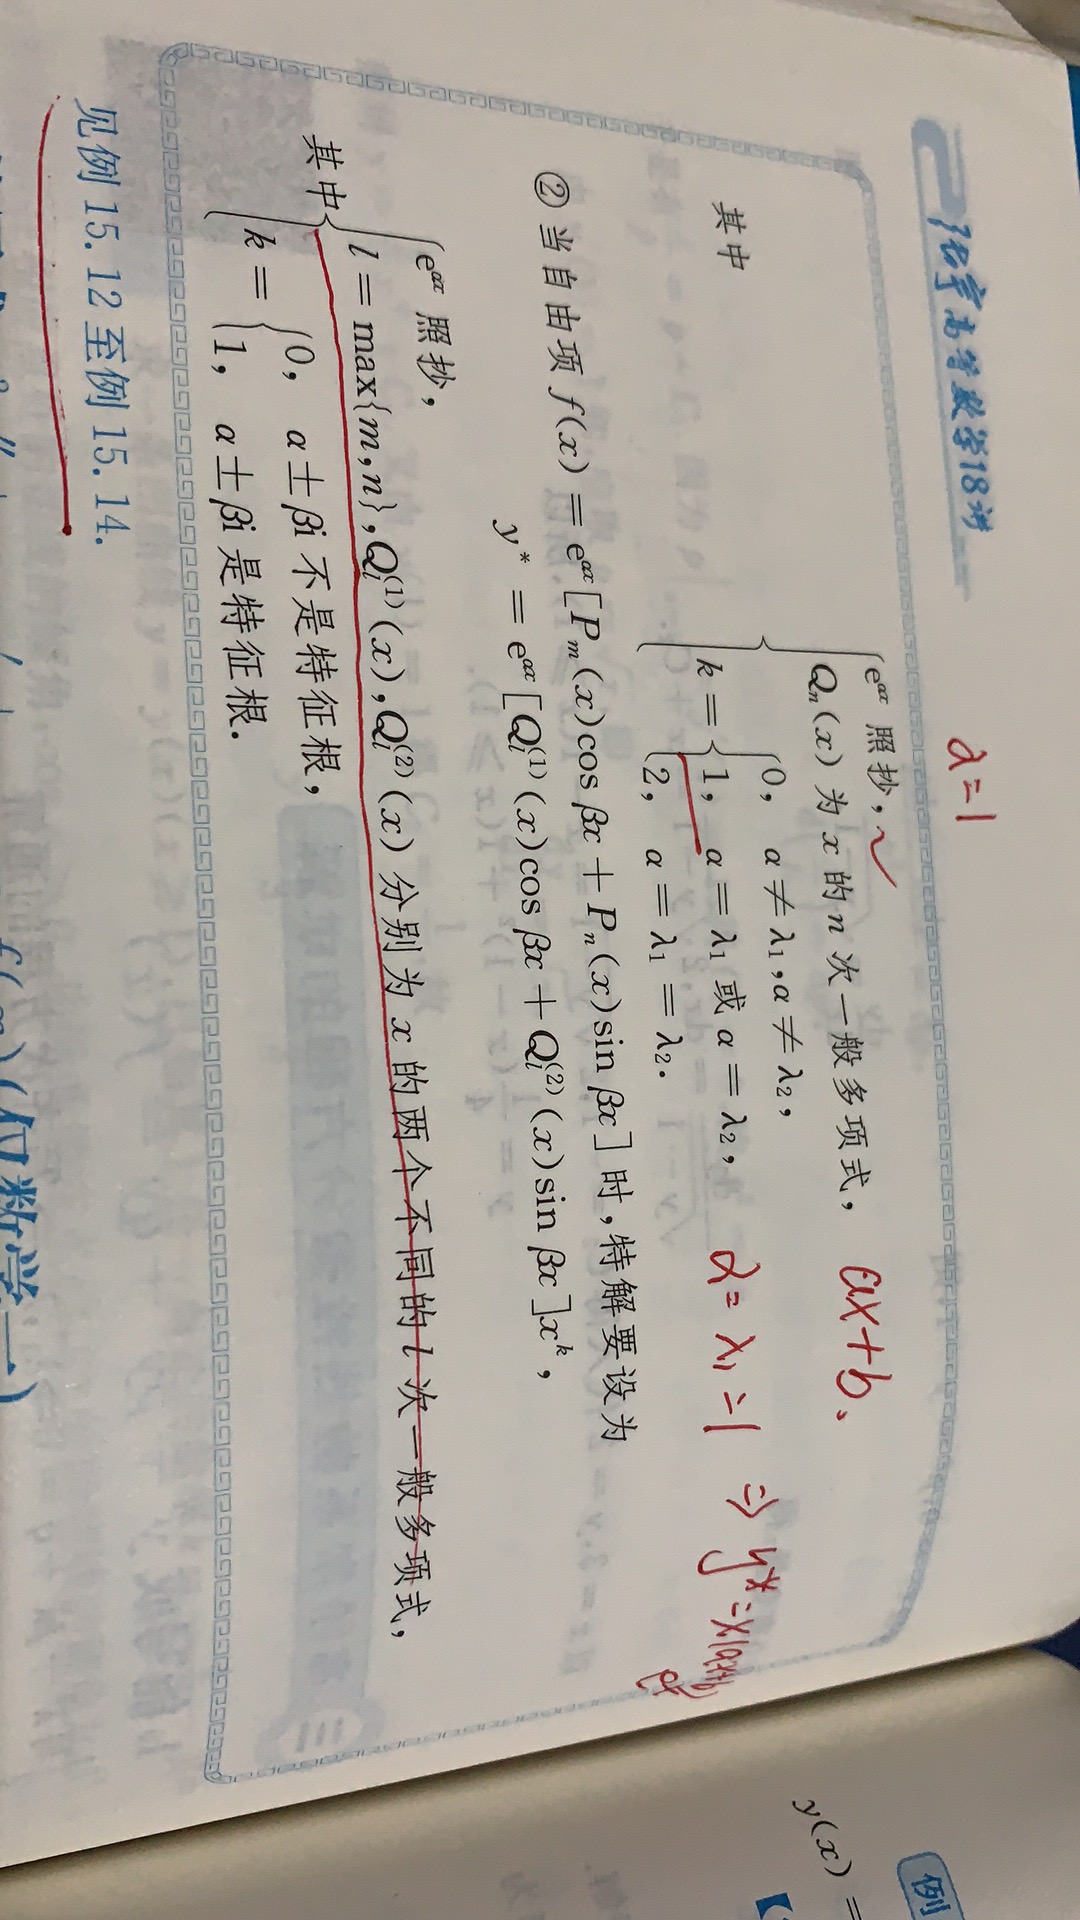 张宇高等数学18讲
λ=1
其中
e^{αx} 照抄,
Q_n(x) 为 x 的 n 次一般多项式, ax+b.
k = { 0, α ≠ λ₁, α ≠ λ₂,
1, α = λ₁ 或 α = λ₂, α = λ₁ = 1 ⇒ y* = x(ax+b)
2, α = λ₁ = λ₂.
② 当自由项 f(x) = e^{αx}[P_m(x)cos βx + P_n(x)sin βx]时,特解要设为
y* = e^{αx}[Q_l^{(1)}(x)cos βx + Q_l^{(2)}(x)sin βx]x^k,
e^{αx} 照抄,
其中 { l = max{m,n}, Q_l^{(1)}(x), Q_l^{(2)}(x) 分别为 x 的两个不同的 l 次一般多项式,
k = { 0, α ± βi 不是特征根,
1, α ± βi 是特征根.
见例 15.12 至例 15.14.
(仅数学一)
例
y(x) =